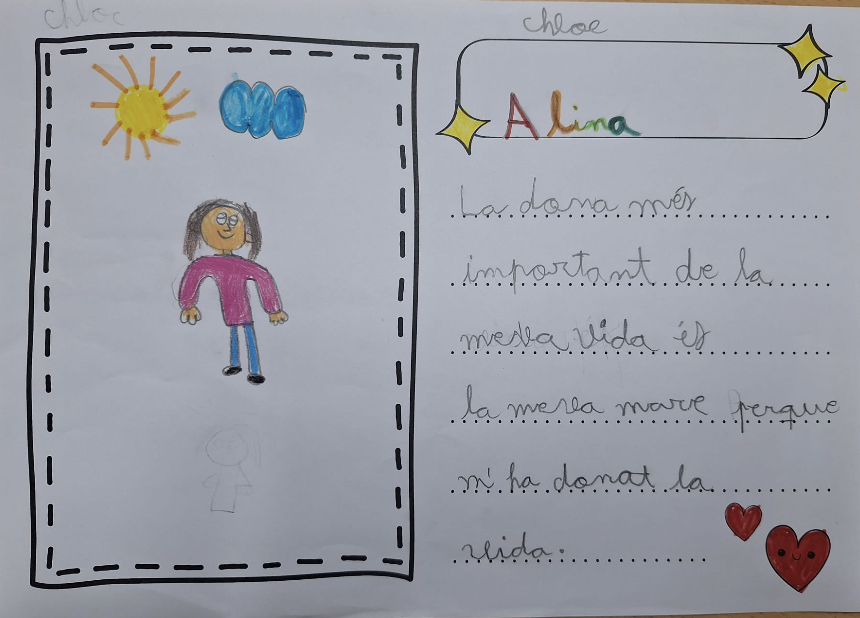 chloe
chloe
Alina
La dona més
important de la
meva vida és
la meva mare perque
m'ha donat la
vida.